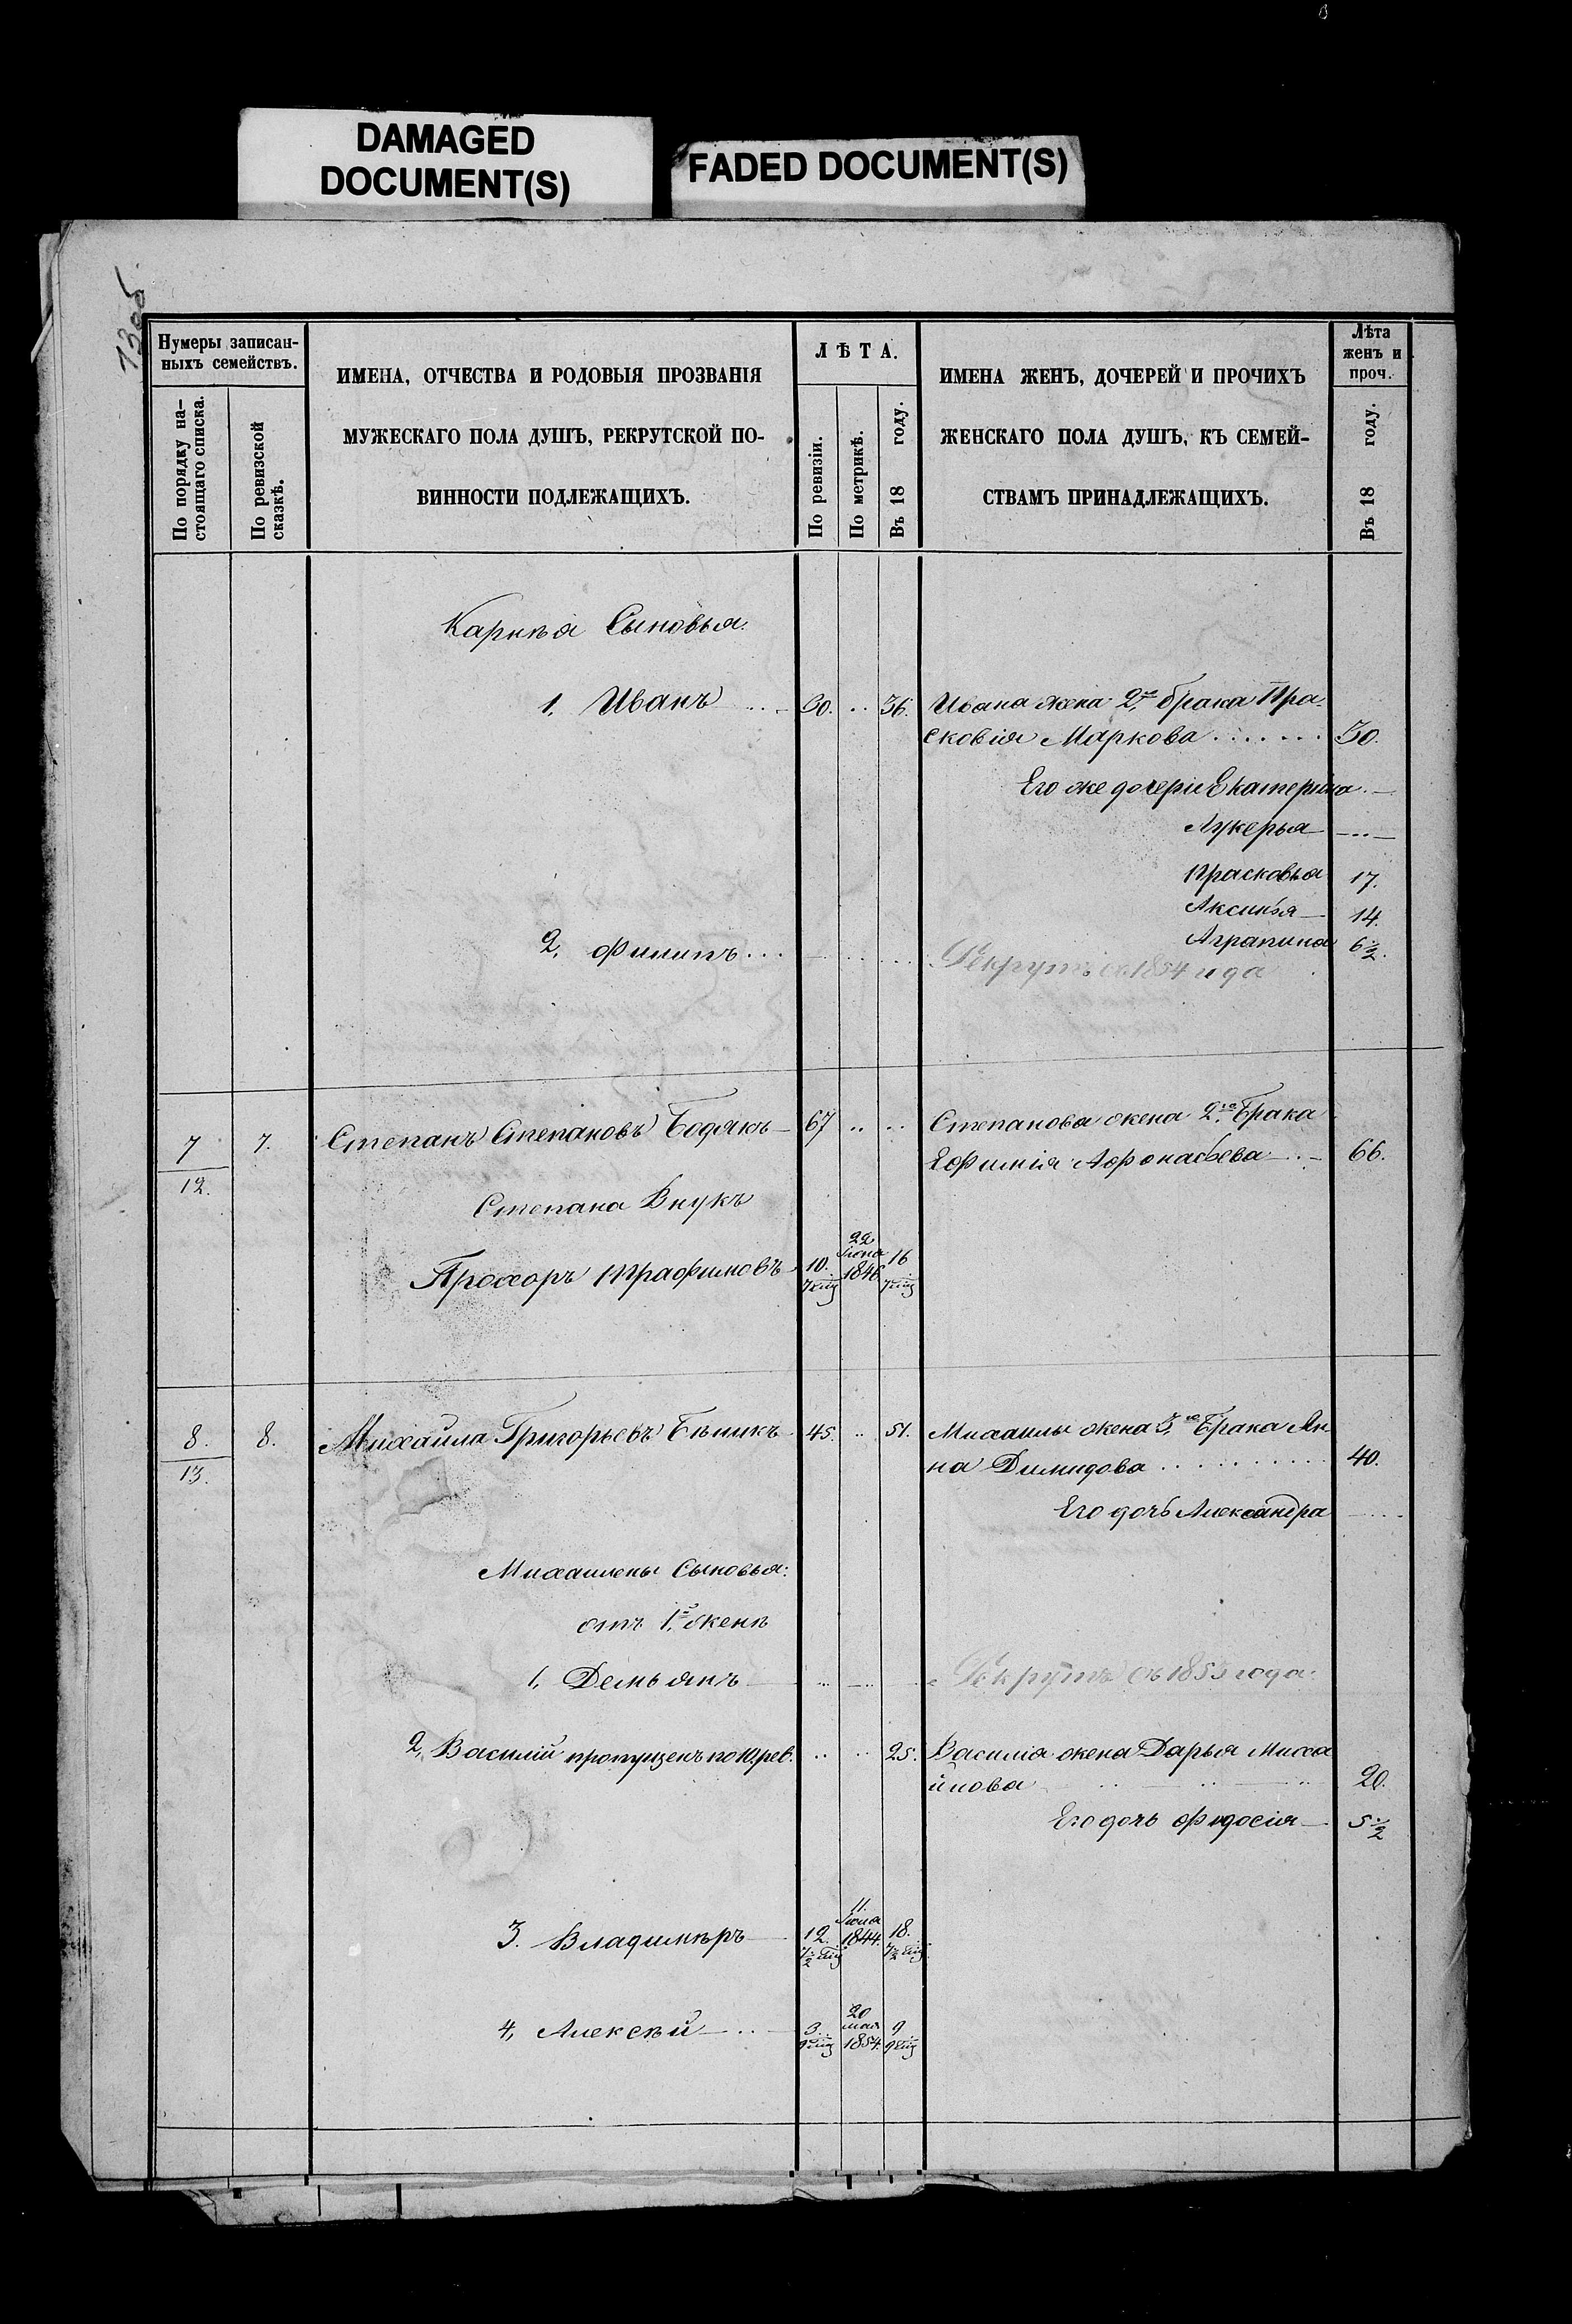 DAMAGED
DOCUMENT(S)
FADED DOCUMENT(S)
1305
Нумеры записан-
ныхъ семействъ.
По порядку на-
стоящаго списка.
По ревизской
сказкѣ.
ИМЕНА, ОТЧЕСТВА И РОДОВЫЯ ПРОЗВАНІЯ
МУЖЕСКАГО ПОЛА ДУШЪ, РЕКРУТСКОЙ ПО-
ВИННОСТИ ПОДЛЕЖАЩИХЪ.
ЛѢТА.
По ревизіи.
По метрикѣ.
Въ 18 году.
ИМЕНА ЖЕНЪ, ДОЧЕРЕЙ И ПРОЧИХЪ
ЖЕНСКАГО ПОЛА ДУШЪ, КЪ СЕМЕЙ-
СТВАМЪ ПРИНАДЛЕЖАЩИХЪ.
Лѣта
женъ и
проч.
Въ 18 году.
Карнѣя Сыновья:
1, Иванъ 30. 36. Ивана жена 2го брака Пра-
сковія Маркова 30.
Его же дочери Екатерина
Лукерья
Прасковья 17.
Аксинья 14.
Аграпина 6½.
2, Филипъ Рекрутъ съ 1854 года
7/12. 7. Степанъ Степановъ Бодякъ 67 Степанова жена 2го Брака
Ефимія Афонасьева 66.
Степана Внукъ
Прохоръ Трафимовъ 10. 7 22 Іюня 1846. 16 7
8./13. 8. Михайла Григорьевъ Бѣликъ 45. 51. Михаилы жена 3го Брака Ан-
на Димидова 40.
Его дочь Александра
Михаилены Сыновья:
отъ 1й женѣ
1, Демьянъ Рекрутъ съ 1855 года.
2, Василій пропущенъ по 10. рев. 25. Василія жена Дарья Миха
йлова 20.
Его дочь Федосія 5½
3. Владимѣръ 12. 7½ 11. Іюня 1844. 18. 7½
4, Алексѣй 3. 9 20 мая 1854. 9 9